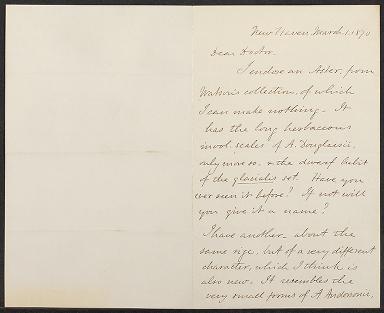 New Haven March 1. 1870
Dear Doctor.
I enclose an Aster, from
Watson's collection, of which
I can make nothing. It
has the long herbaceous
invol. scales of A. Douglasii,
only more so, & the dwarf habit
of the glacialis set. Have you
ever seen it before? If not will
you give it a name?
I have another about the
same size, but of a very different
character, which I think is
also new. It resembles the
very small forms of A. Andersonii,